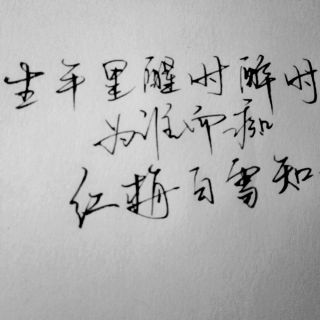 生平里醒时醉时
为谁而痴
红梅白雪知